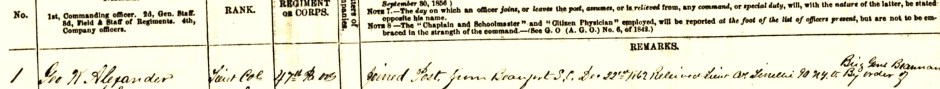 September 30, 1856)
NOTE 7.—The day on which an officer joins, or leaves the post, assumes, or is relieved from, any command, or special duty, will, with the nature of the latter, be stated
opposite his name.
NOTE 8—The "Chaplain and Schoolmaster" and "Citizen Physician" employed, will be reported at the foot of the list of officers present, but are not to be em-
braced in the strength of the command.—(See G. O (A. G. O.) No. 6, of 1842.)
No.
1st, Commanding officer. 2d, Gen. Staff.
3d, Field & Staff of Regiments. 4th,
Company officers.
RANK.
REGIMENT
OR CORPS.
REMARKS.
1 Geo W. Alexander Lieut Col 47th Joined Post from Beaufort S.C. Dec 22nd 1862 Relieved Lieut Col 90 N.Y. By order of
Brig Genl Brannan